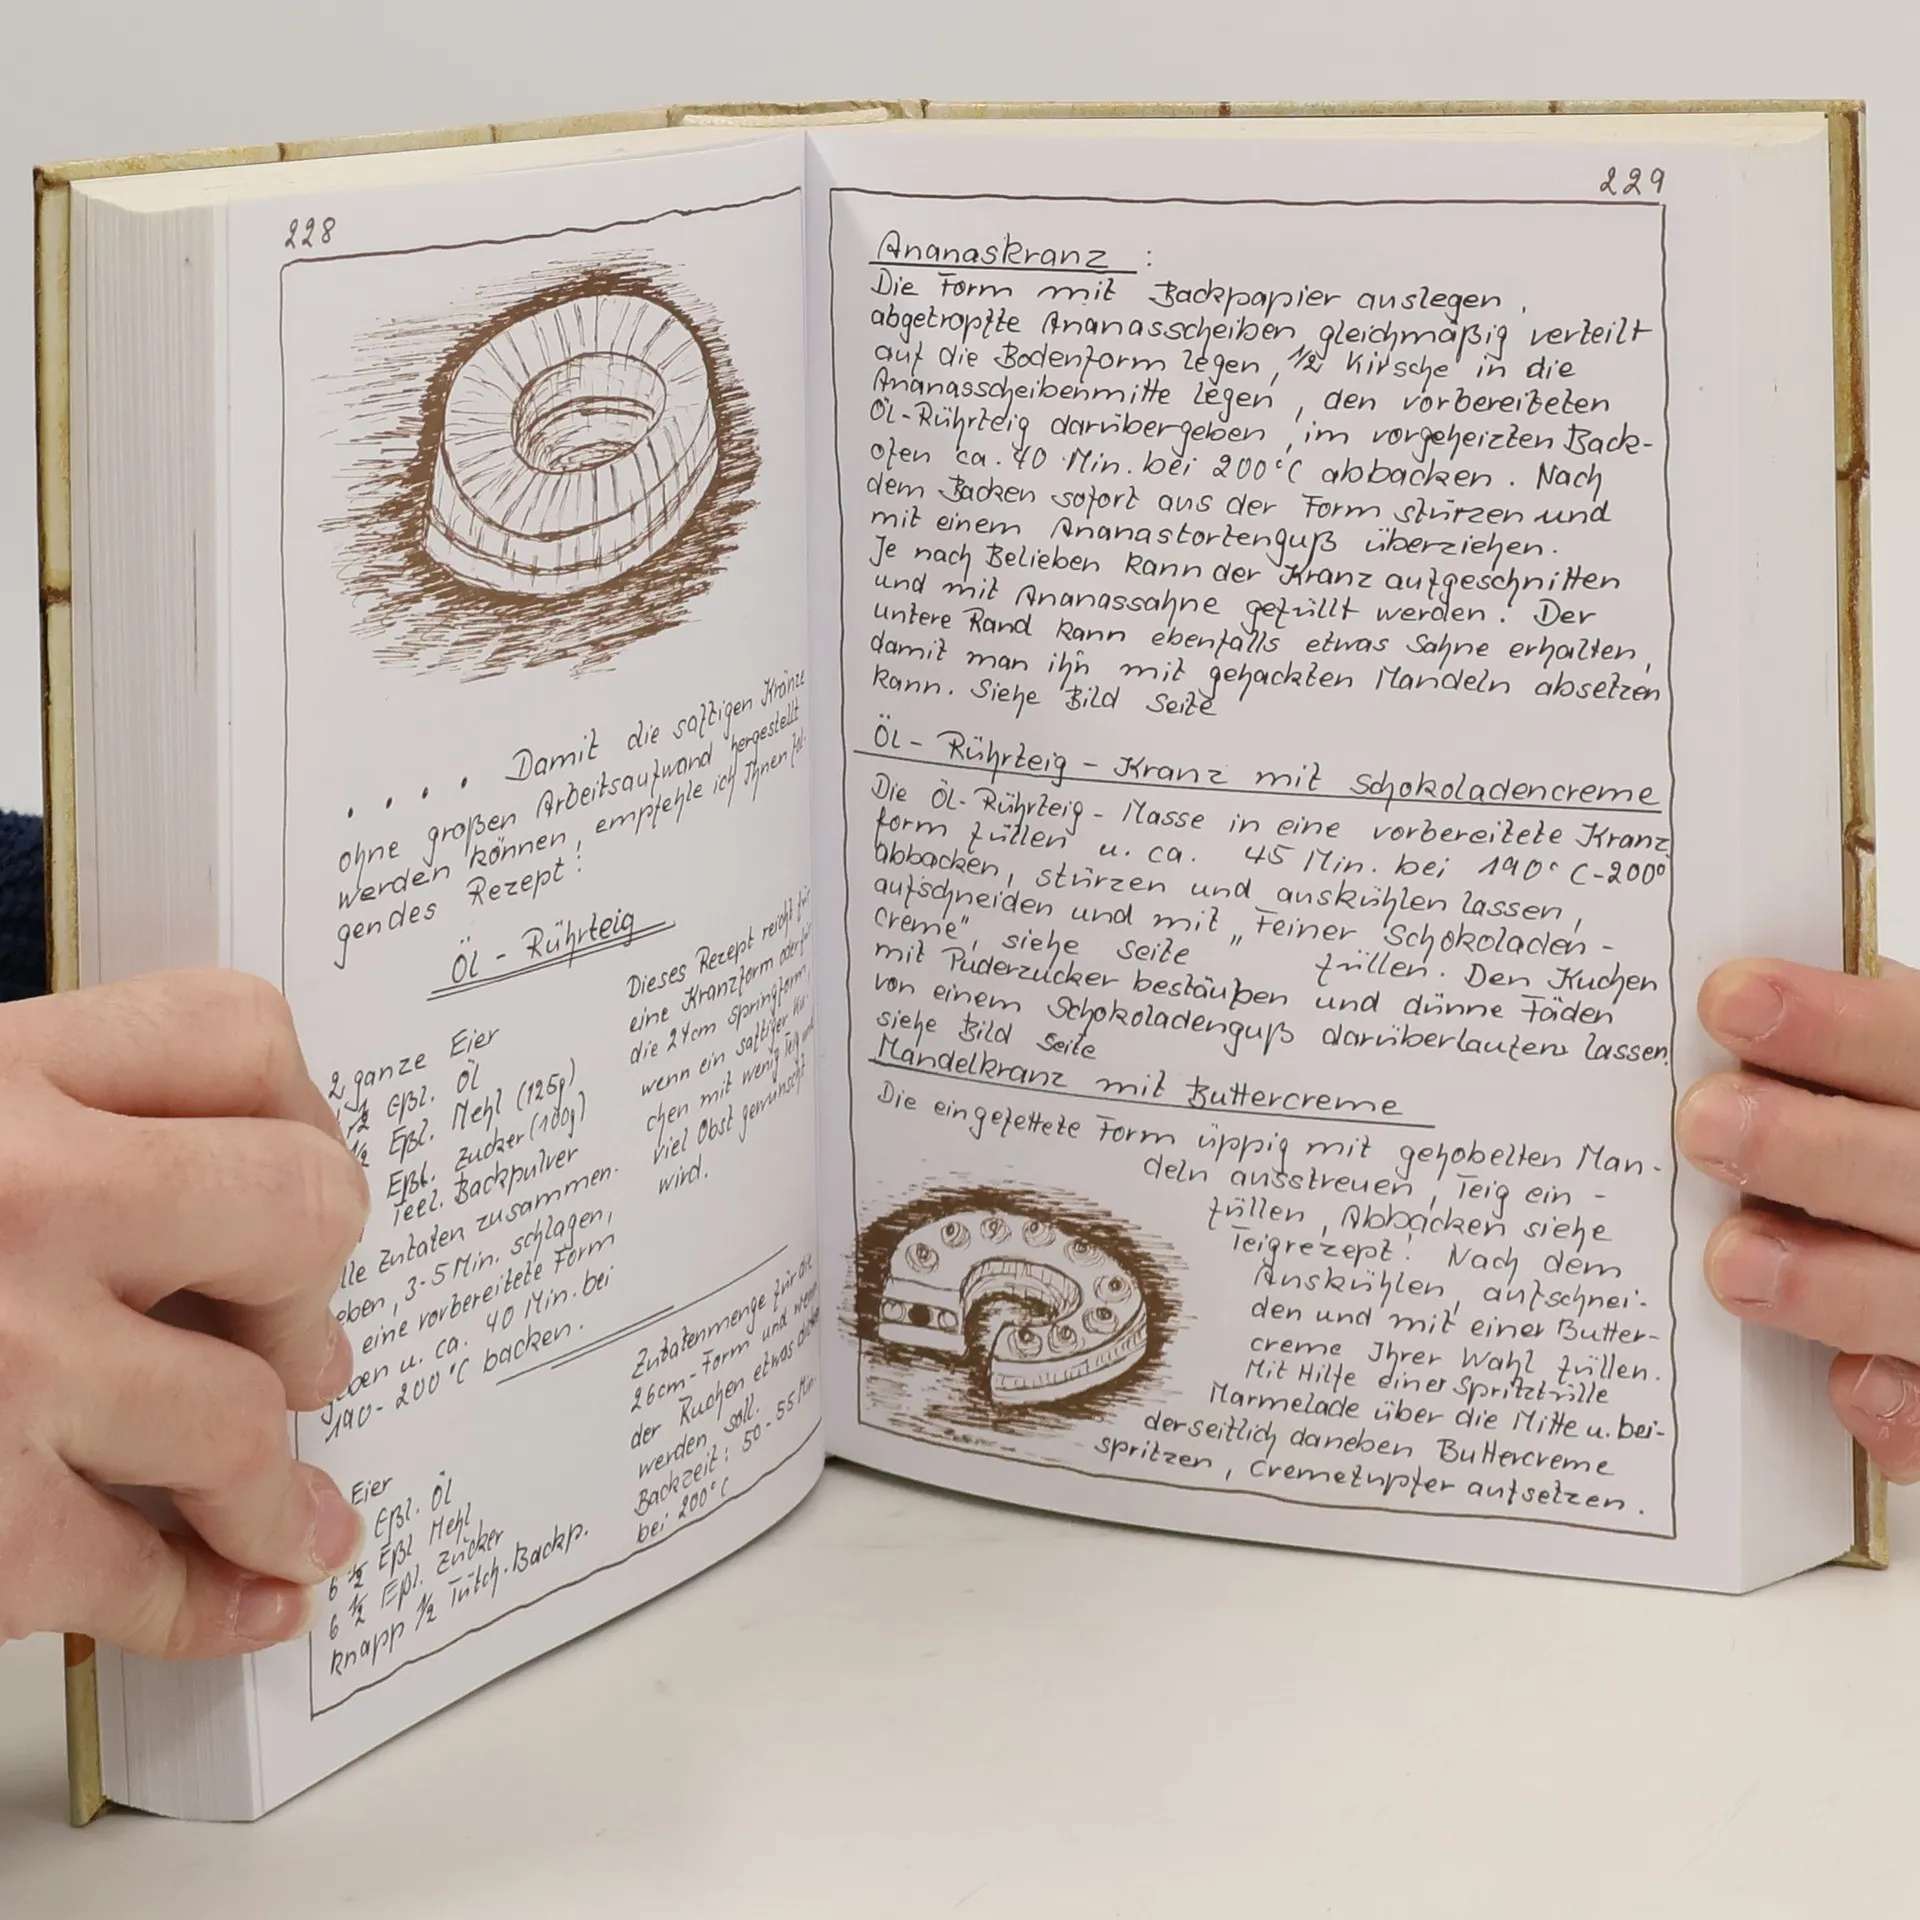 228
. . . . Damit die saftigen Kränze
ohne großen Arbeitsaufwand hergestellt
werden können, empfehle ich Ihnen fol-
gendes Rezept:
Öl - Rührteig
2 ganze Eier
½ Eßl. Öl
½ Eßl. Mehl (125g)
Eßl. Zucker (100g)
Teel. Backpulver
lle Zutaten zusammen-
eben, 3-5 Min. schlagen,
eine vorbereitete Form
eben u. ca. 40 Min. bei
190-200°C backen.
Dieses Rezept reicht für
eine Kranzform oder für
die 24cm Springform,
wenn ein saftiger Ku-
chen mit wenig Teig und
viel Obst gewünscht
wird.
Eier
Eßl. Öl
6 ½ Eßl Mehl
6 ½ Eßl. Zucker
knapp ½ Tütch. Backp.
Zutatenmenge für die
26cm-Form und wenn
der Kuchen etwas
werden soll.
Backzeit: 50-55 Min.
bei 200°C
229
Ananaskranz :
Die Form mit Backpapier auslegen,
abgetropfte Ananasscheiben gleichmäßig verteilt
auf die Bodenform legen, ½ Kirsche in die
Ananasscheibenmitte legen, den vorbereiteten
Öl-Rührteig darübergeben, im vorgeheizten Back-
ofen ca. 40 Min. bei 200°C abbacken. Nach
dem Backen sofort aus der Form stürzen und
mit einem Ananastortenguß überziehen.
Je nach Belieben kann der Kranz aufgeschnitten
und mit Ananassahne gefüllt werden. Der
untere Rand kann ebenfalls etwas Sahne erhalten,
damit man ihn mit gehackten Mandeln absetzen
kann. Siehe Bild Seite
Öl - Rührteig - Kranz mit Schokoladencreme
Die Öl-Rührteig-Masse in eine vorbereitete Kranz
form füllen u. ca. 45 Min. bei 190°C-200°
abbacken, stürzen und auskühlen lassen,
aufschneiden und mit „Feiner Schokoladen-
creme", siehe Seite füllen. Den Kuchen
mit Puderzucker bestäuben und dünne Fäden
von einem Schokoladenguß darüberlaufen lassen.
siehe Bild Seite
Mandelkranz mit Buttercreme
Die eingefettete Form üppig mit gehobelten Man-
deln ausstreuen, Teig ein-
füllen, Abbacken siehe
Teigrezept. Nach dem
Auskühlen, aufschnei-
den und mit einer Butter-
creme Ihrer Wahl füllen.
Mit Hilfe einer Spritztülle
Marmelade über die Mitte u. bei-
derseitlich daneben Buttercreme
spritzen, Cremetupfer aufsetzen.